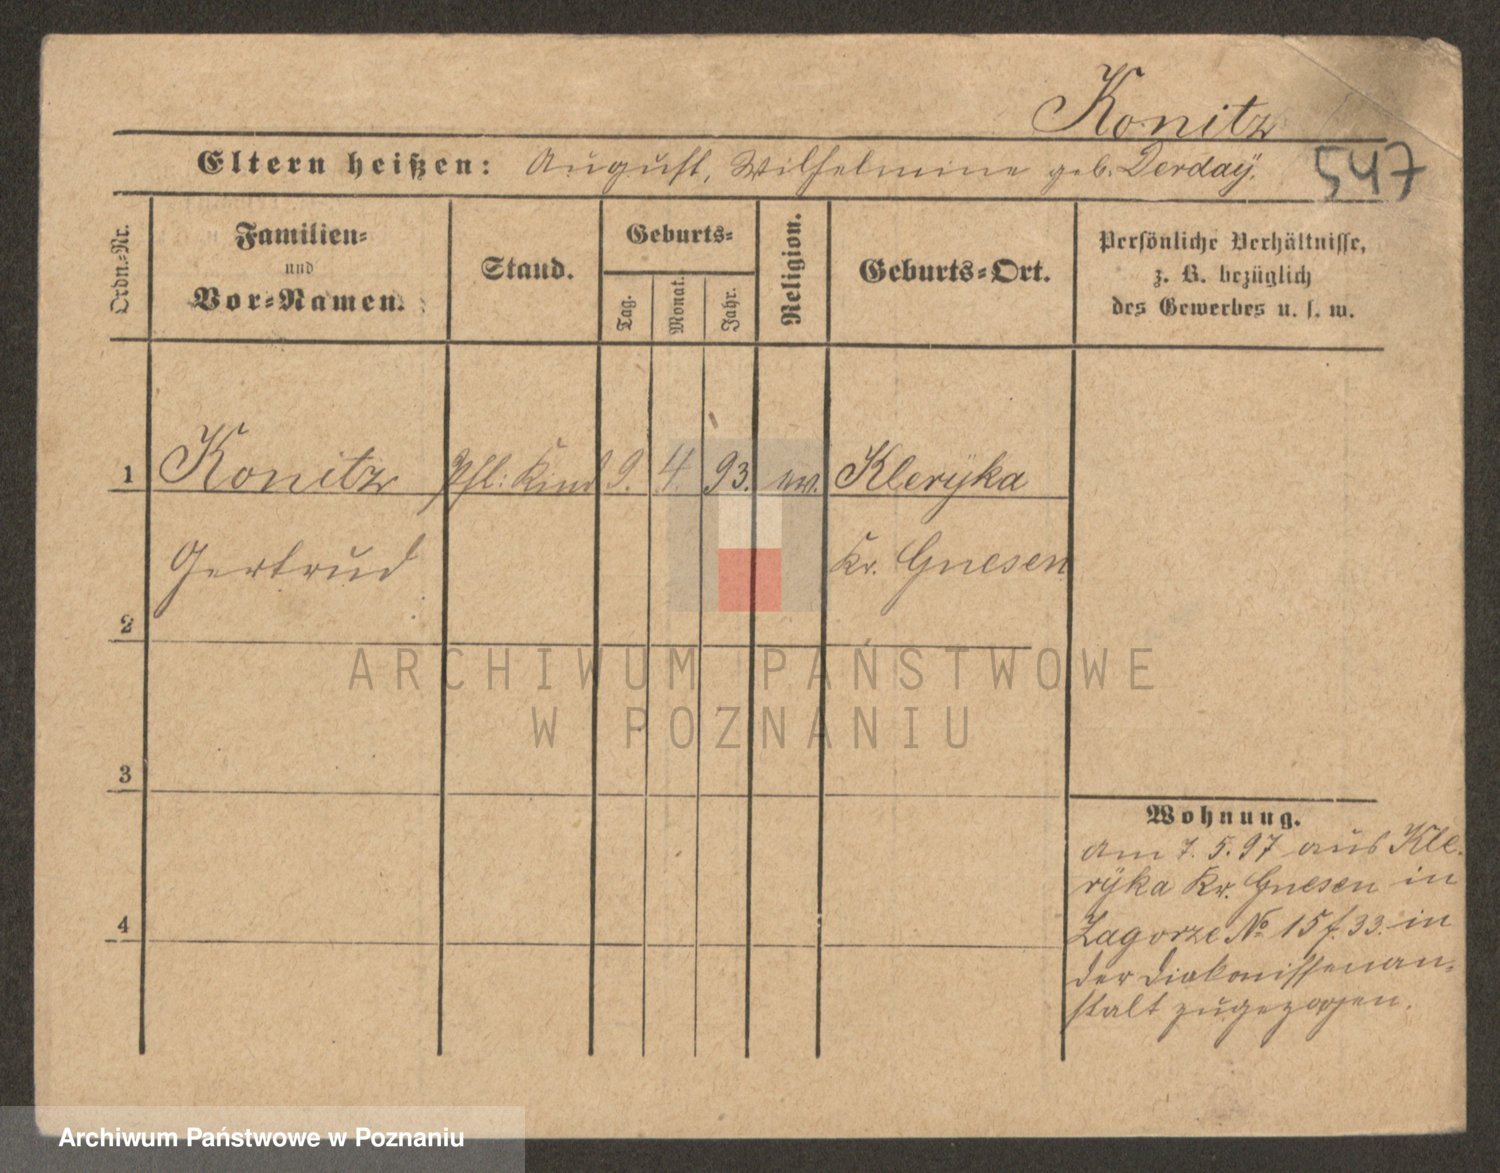 Konitz
Eltern heißen: August, Wilhelmine geb. Derday.
547
Ordn.-Nr.
Familien-
und
Vor-Namen.
Stand.
Geburts-
Tag.
Monat.
Jahr.
Religion.
Geburts-Ort.
Persönliche Verhältnisse,
z. B. bezüglich
des Gewerbes u. s. w.
1 Konitz Pfl: Kind 9. 4. 93. ev. Kleryka
Gertrud Kr. Gnesen
2
3
4
Wohnung.
am 7. 5. 97 aus Kle-
ryka Kr. Gnesen in
Zagorze No 15 f. 33. in
der Diakonissenan-
stalt zugezogen.
ARCHIWUM PAŃSTWOWE
W POZNANIU
Archiwum Państwowe w Poznaniu